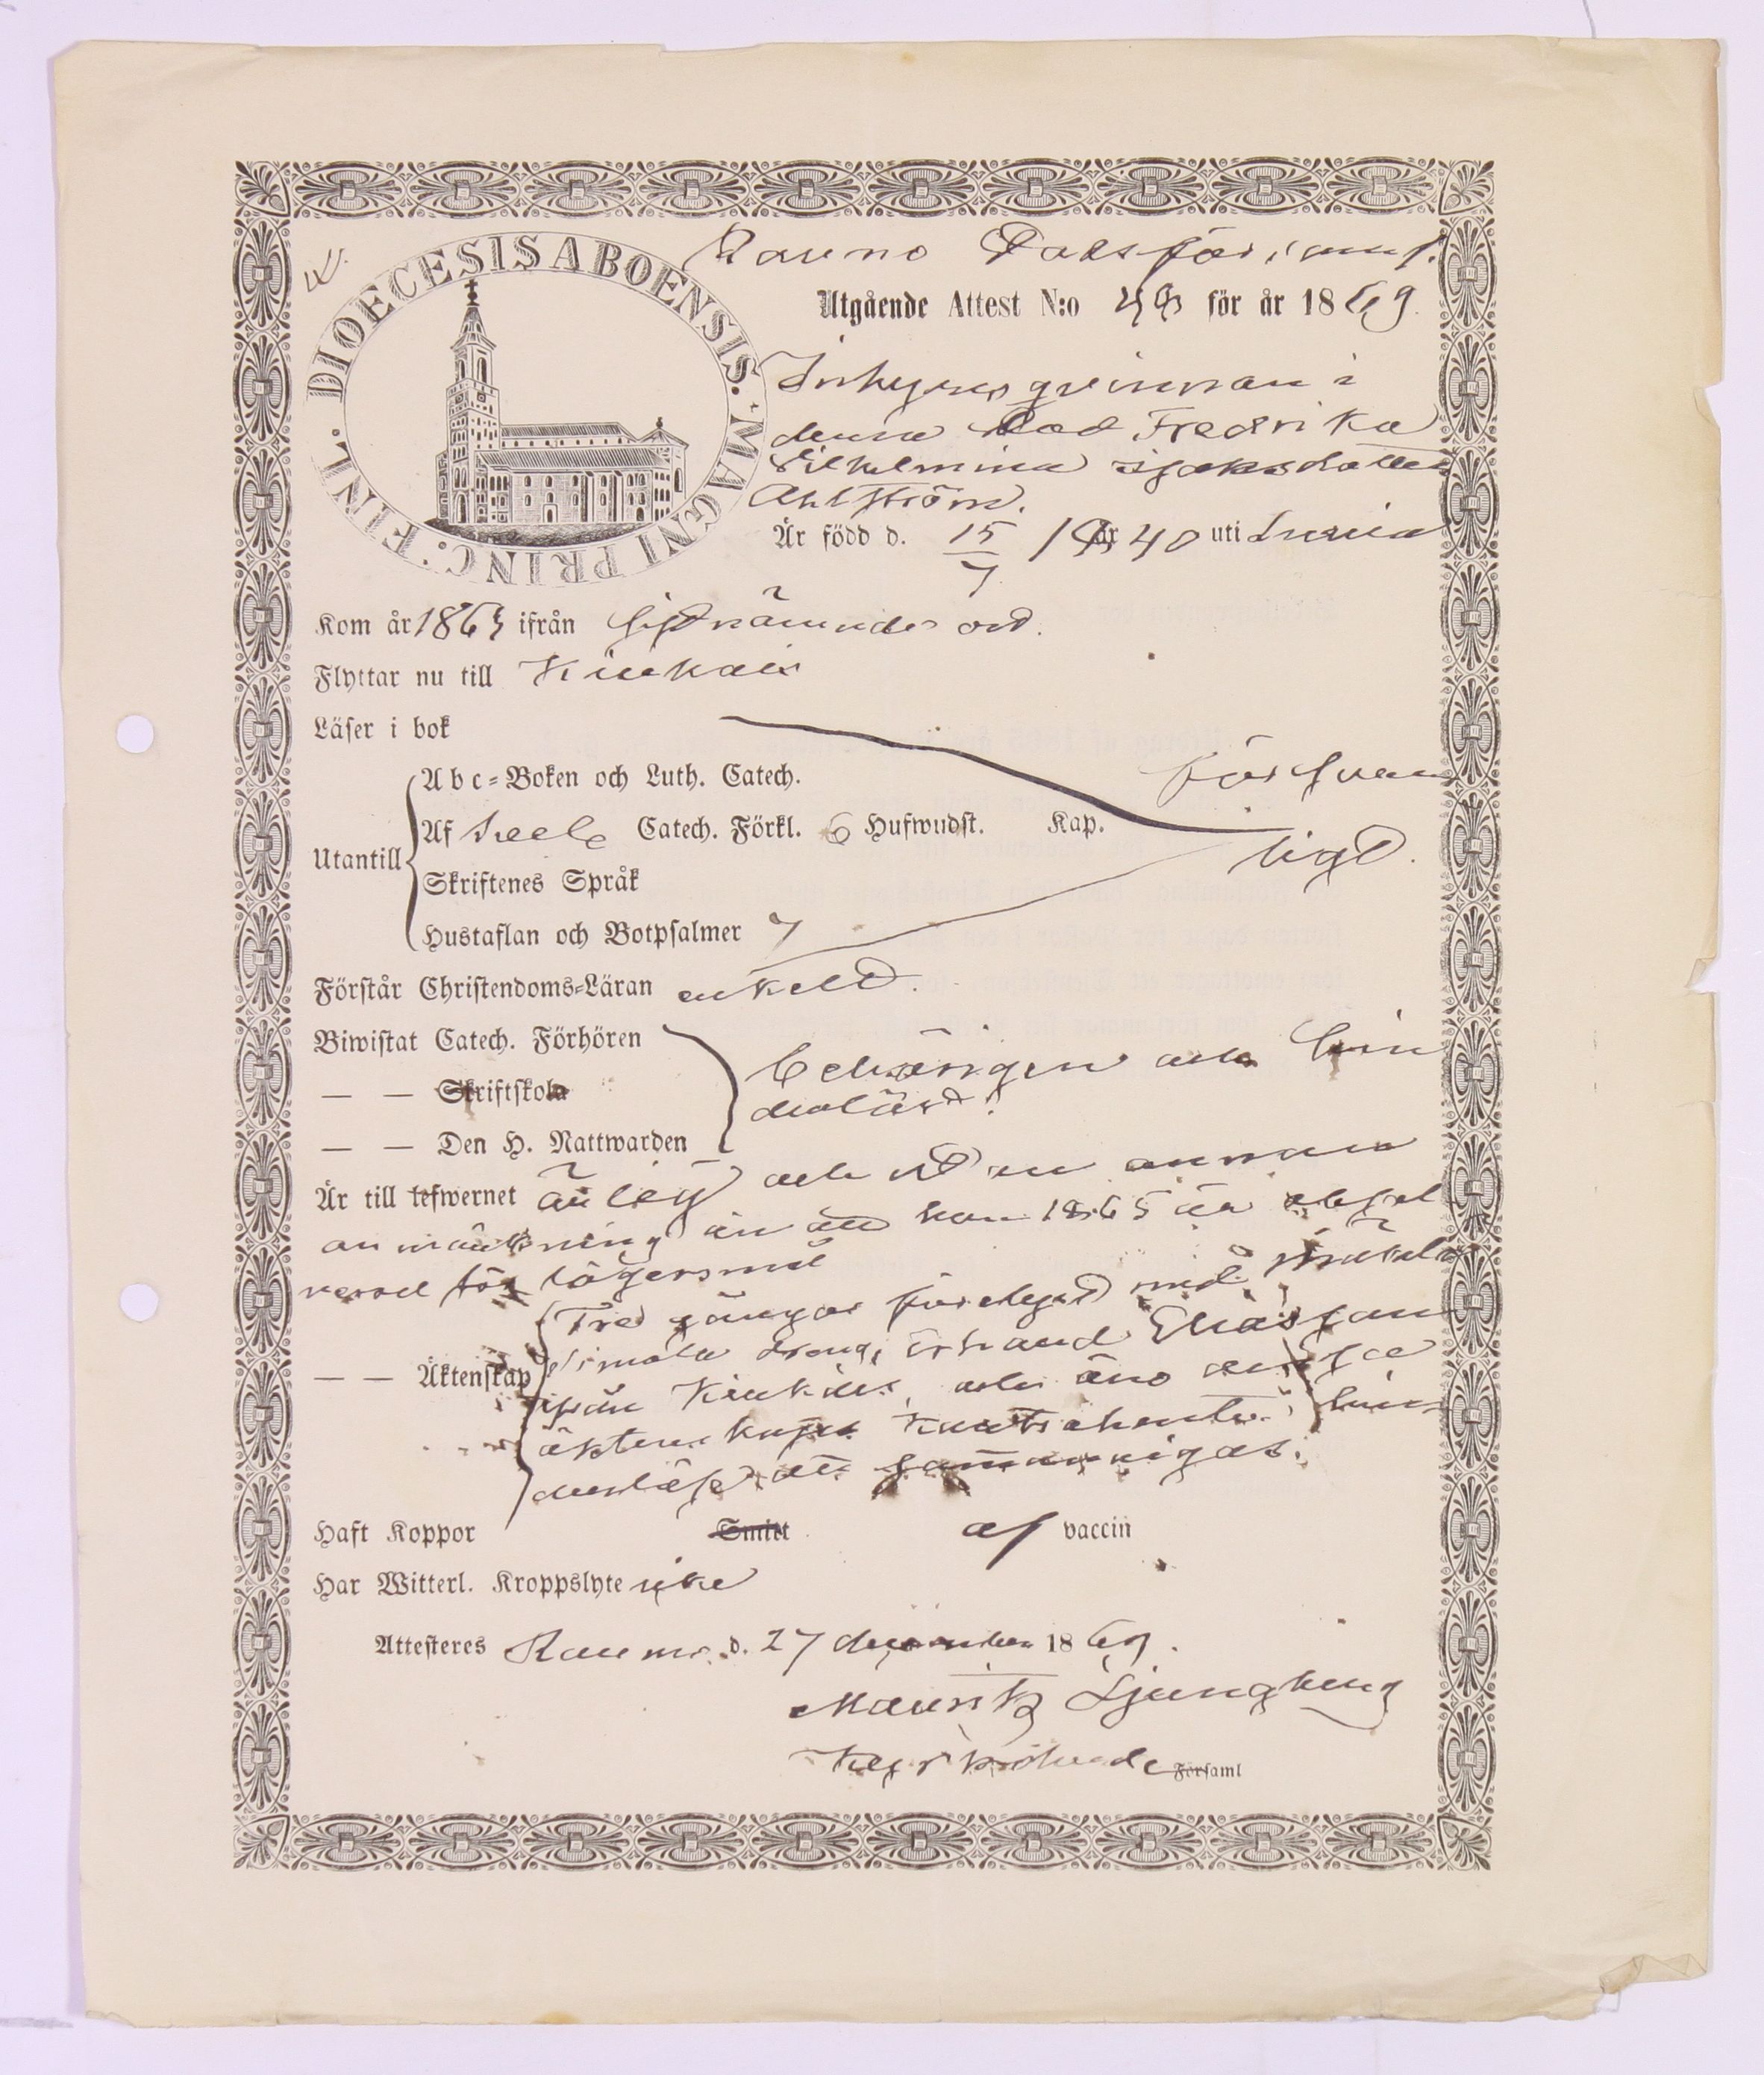 DIOECESIS ABOENSIS. MAGNI PRINC. FINL.
Raumo
Utgående Attest N:o 48 för år 1869.
Inhyses qvinnan i
denna Stad Fredrika
Vilhelmina Isaksdotter
Ahlström.
Är född d. 15/7 1840 uti Luvia
Kom år 1863 ifrån sistnämnde ort.
Flyttar nu till Kiukais
Läser i bok
försvar
Abc-Boken och Luth. Catech.
Utantill
Af hela Catech. Förkl. 6 Hufwudst. Kap.
ligt.
Skriftenes Språk
Hustaflan och Botpsalmer 7
Förstår Christendoms-Läran enkelt.
Biwistat Catech. Förhören
behörigen och hin
— — Skriftskola
derlöst.
— — Den H. Nattwarden
Är till lefwernet ärlig och utan annan
anmärkning än att hon 1865 är
för lägersmål
Tre gånger
— — Äktenskap
dräng Erland Eliasson
ifrån Kiukais, och äro desse
äktenskaps kontrahenter hin
derlöse att sammanvigas.
Haft Koppor Smitt af vaccin
Har Witterl. Kroppslyte icke
Attesteres Raumo d. 27 december 1869.
Mauritz Ljungberg
Församl